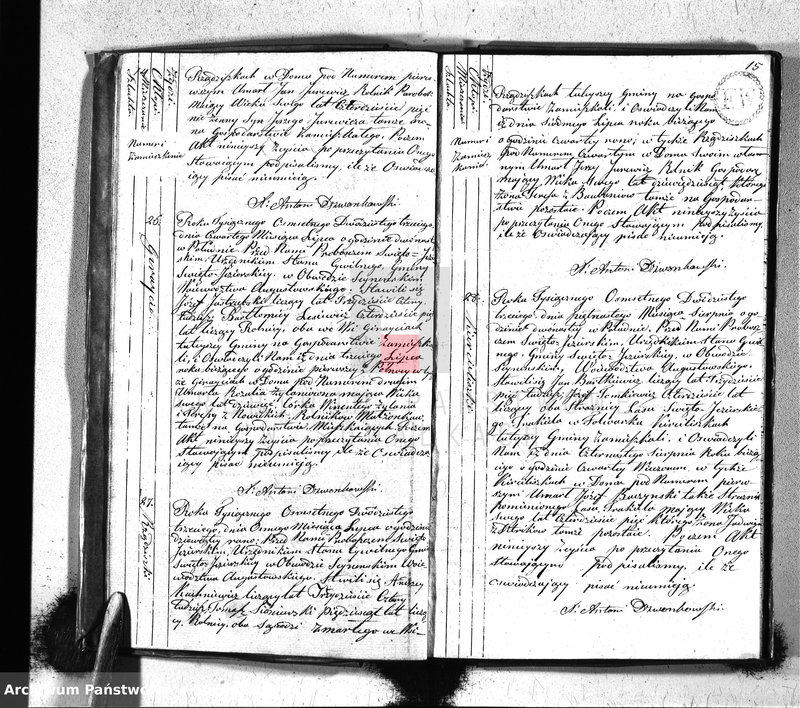 w Domu pod Numerem pierw
szym Umarł Jan Jurewicz Rolnik Parobek
Mający Wieku Swego lat Czterdzieście pięć
nie żonaty Syn Jozefa Jurewicza tamże
na Gospodarstwie Zamieszkałego. Poczem
Akt niniejszy Zejścia po przeczytaniu Onego
Stawającym podpisaliśmy, ile że Oświadcza
iący pisać nieumieią.
X. Antoni Dzwonkowski.
26.
Roku Tysiącznego Osmsetnego Dwódziestego trzeciego,
dnia Czwartego Miesiąca Lipca o godzinie dwónastey
w Południe. Przed Nami Proboszczem Swięto=Jezier
skim, Urzędnikiem Stanu Cywilnego, Gminy
Swięto-Jezierskiey, w Obwodzie Seyneńskim
Woiewództwa Augustowskiego. Stawili się
Józef Jastrzębski liczący lat Trzydzieście Cztery
tudzież Bartłomiey Lesiewicz Czterdzieście pięć
lat liczący Rolnicy, oba we Wsi Girayciach
tuteyszey Gminy na Gospodarstwie Zamieszka
li, i Oswiadczyli Nam iż dnia trzeciego Lipca
roku bieżącego o godzinie pierwszey z Północy w tych
że Girayciach w Domu pod Numerem drugim
Umarła Rozalia Żylanowna mająca Wieku
Swego lat dziewięć, Córka Wincentego Żylania
i Teressy z Nowickich, Rolników Małżonków,
tamże na Gospodarstwie Mieszkaiących. Poczem
Akt niniejszy Zejścia po przeczytaniu Onego
Stawającym podpisaliśmy ile że Oswiadcza
iący pisać nieumieią.
X. Antoni Dzwonkowski.
27.
Roku Tysiącznego Osmsetnego Dwódziestego
trzeciego, dnia Osmego Miesiąca Lipca o godzinie
dziewiątey rano, Przed Nami Proboszczem Swięto
Jezierskim, Urzędnikiem Stanu Cywilnego Gminy
Swięto-Jezierskiey w Obwodzie Seyneńskim Woie
wództwa Augustowskiego. Stawili się Andrzey
liczący lat Trzydzieście Cztery
tudzież Tomasz Pięćdziesiąt lat liczą
cy, Rolnicy, oba Sąsiedzi Zmarłego we Wsi
15
tuteyszey Gminy na Gospo
darstwie Zamieszkali, i Oswiadczyli Nam
iż dnia Siodmego Lipca roku bieżącego
o godzinie Czwartey rano, w tychże
pod Numerem Czwartym w Domu Swoim włas
nym Umarł Jerzy Jurewicz Rolnik Gospodarz
mający Wieku Swego lat dziewięćdziesiąt, którego
Żona tamże na Gospodar
stwie pozostaie. Poczem Akt niniejszy zejścia
po przeczytaniu Onego Stawającym podpisaliśmy,
ile że Oswiadczający pisać nieumieią.
X. Antoni Dzwonkowski.
28.
Roku Tysiącznego Osmsetnego Dwódziestego
trzeciego, dnia Piętnastego Miesiąca Sierpnia o go
dzinie dwónastey w Południe. Przed Nami Probosz
czem Swięto Jezierskim, Urzędnikiem Stanu Cywil
nego, Gminy Swięto-Jezierskiey, w Obwodzie
Seyneńskim, Woiewództwa Augustowskiego.
Stawili się Jan Bartkiewicz liczący lat Trzydzieście
pięć tudzież Józef Tomkiewicz Czterdzieście lat
liczący oba Strażnicy Lasu Swięto Jezierskie
go, w Folwarku
tuteyszey Gminy Zamieszkali, i Oswiadczyli
Nam iż dnia Czternastego Sierpnia Roku bieżą
cego o godzinie Czwartey Wieczorem, w tychże
w Domu pod Numerem pierw
szym Umarł Józef także Strażnik
Lasu mający Wieku
Swego lat Czterdzieście pięć którego Żona Jadwiga
tamże pozostaie. Poczem Akt
niniejszy zejścia po przeczytaniu Onego
Stawającym podpisaliśmy, ile że
Oswiadczający pisać nieumieią
X. Antoni Dzwonkowski.
Archiwum Państwo